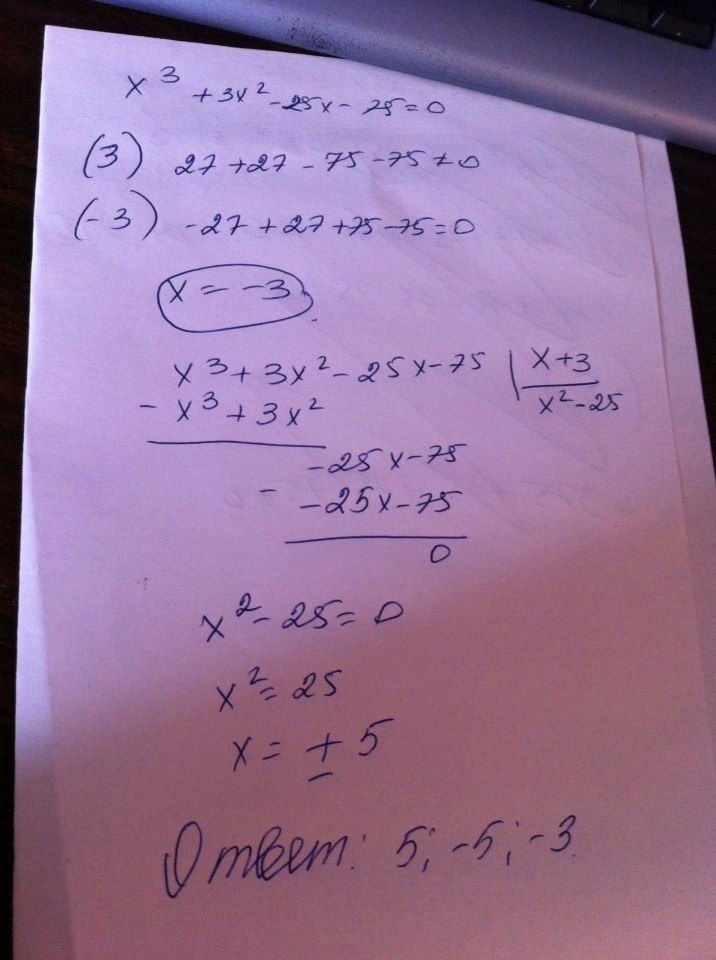 x³ + 3x² - 25x - 75 = 0
(3) 27 + 27 - 75 - 75 ≠ 0
(-3) -27 + 27 + 75 - 75 = 0
x = -3
x³ + 3x² - 25x - 75 | x + 3
- x³ + 3x² x² - 25
-25x - 75
- -25x - 75
0
x² - 25 = 0
x² = 25
x = ± 5
Ответ: 5; -5; -3